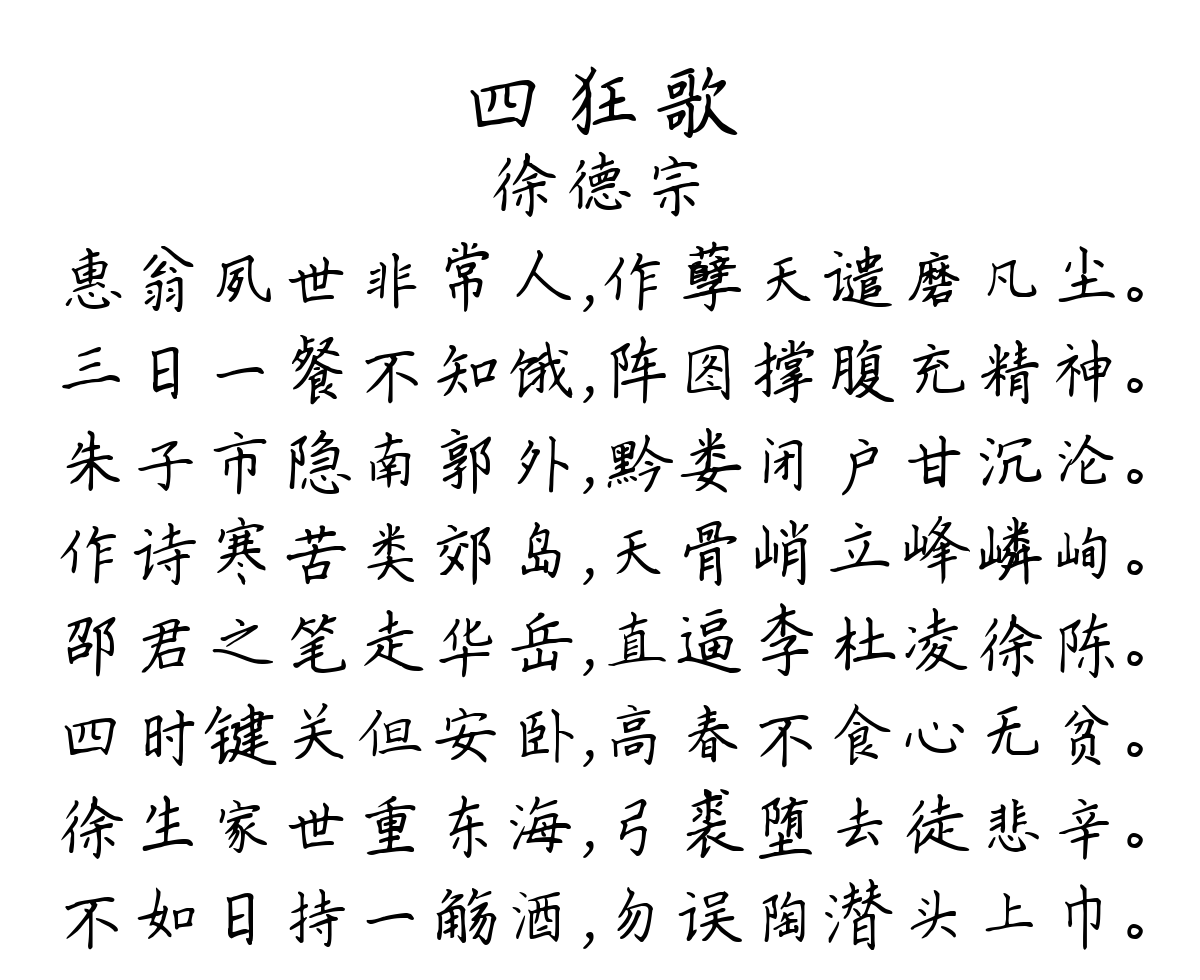 四狂歌
徐德宗
惠翁夙世非常人,作孽天谴磨凡尘。
三日一餐不知饿,阵图撑腹充精神。
朱子市隐南郭外,黔娄闭户甘沉沦。
作诗寒苦类郊岛,天骨峭立峰嶙峋。
邵君之笔走华岳,直逼李杜凌徐陈。
四时键关但安卧,高春不食心无贫。
徐生家世重东海,弓裘堕去徒悲辛。
不如日持一觞酒,勿误陶潜头上巾。